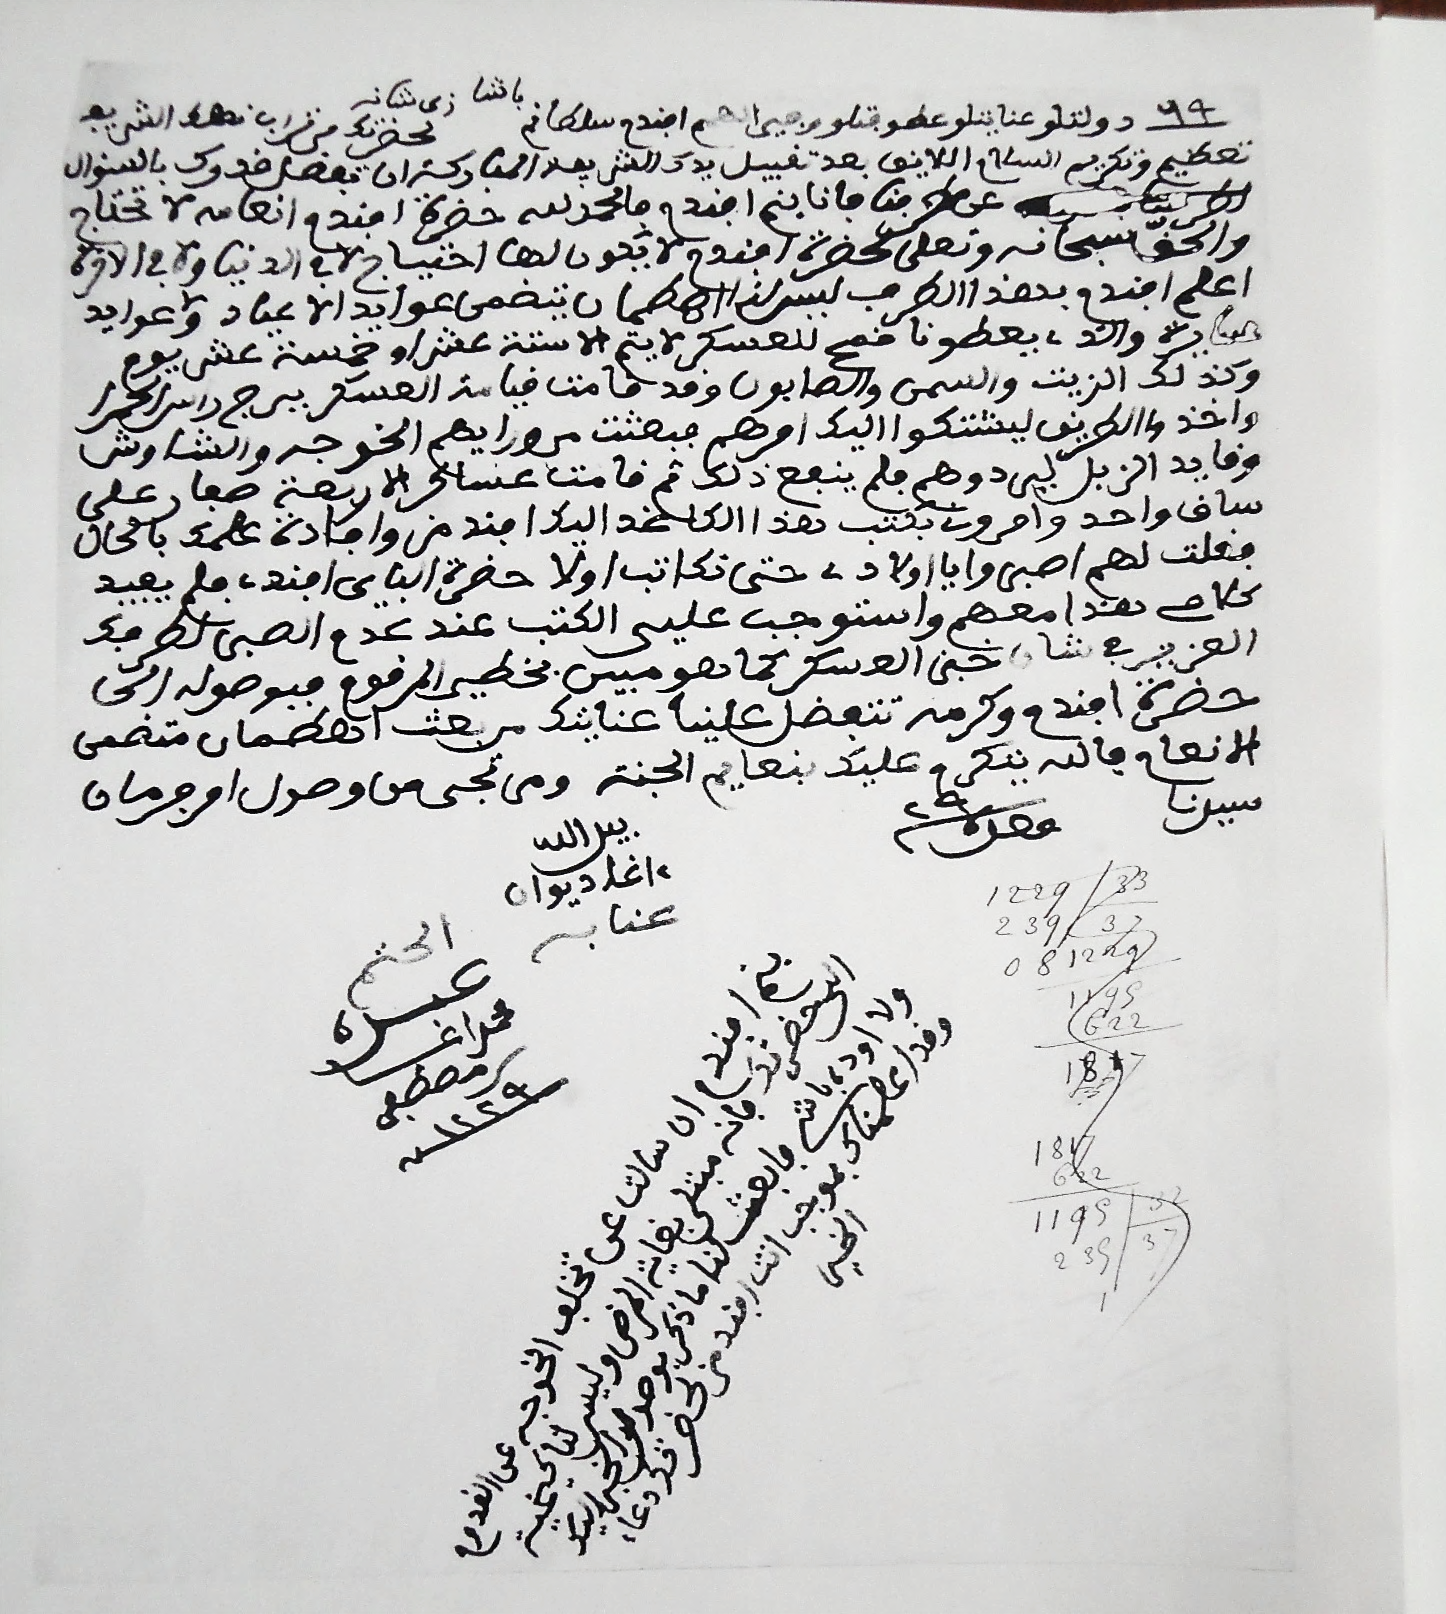 ٩٤ دولتلو عنايتلو عطوفتلو مرحمتلو افندم سلطانم
باشا زى شانه
لحضرتك من قراب نعلك الشريعه
تعظيم وتكريم السلام اللايق بعد تقبيل يدك الشريعه المباركة ان تفضل خدوك بالسؤال
عن طرفنا فاننا بنعم افندم والحمد لله حضرة افندم انعامه لا نحتاج
والحق سبحانه وتعلى لحضرة افندم لا يكون لها احتياج لا في الدنيا ولا في الاخرة
اعلم افندم بهذا الطرف ليس لنا تتضمى عوايد الاعياد ولا عوايد
والذى يعطونا فمح للعسكر لا يتم الا ستة عشر او خمسة عشر يوم
وكذلك الزيت والسمن والصابون وقد قامت قيامة العسكر ببرج راس الحمرا
واخذوا الطريق ليشتكوا اليك امرهم فبعثت من ورايهم الخوجه والشاوش
وقايد الزبل ليردوهم فلم ينفع ذلك ثم قامت عساكر الاربعة صغار على
ساق واحد وامرونى بكتب هذا الكاغد اليك افندم وافادة علمك بالحال
فقلت لهم اصبروا يا اولادى حتى نكاتب اولا حضرة الباى افندى فلم يفيد
كلامى هذا معهم واستوجب على الكتب عند عدم الصبر لطرفك
العزيز في شان خبز العسكر كما هو مبين المرفوع فبوصوله الى
حضرة افندم وكرمه تتفضل علينا عنايتك من بعث
الانعام فالله يتكرم عليك بنعايم الجنة ومن تجى من وصول امر فرمان
سيدنا
٢٩
بيل الله
اغا ديوان
عنابه
الختم
عبده
محمد اغا
بن مصطفى
١٢٢٩ سنة
افندم ان سالت عن تخلف الخوجه عن القدوم
الى حضرتك فانه مبتلى بغاية المرض وليس لنا
ولا اوده باشى فابعث لنا ما ذكر بوصول الخبر اليك
وقد اعلمناك بموجب انت افندم لحضرتك دعاء
الخير
1229 33
239 37
0 8 1229
1195
622
181
1817
622
1195 32
239 37
1